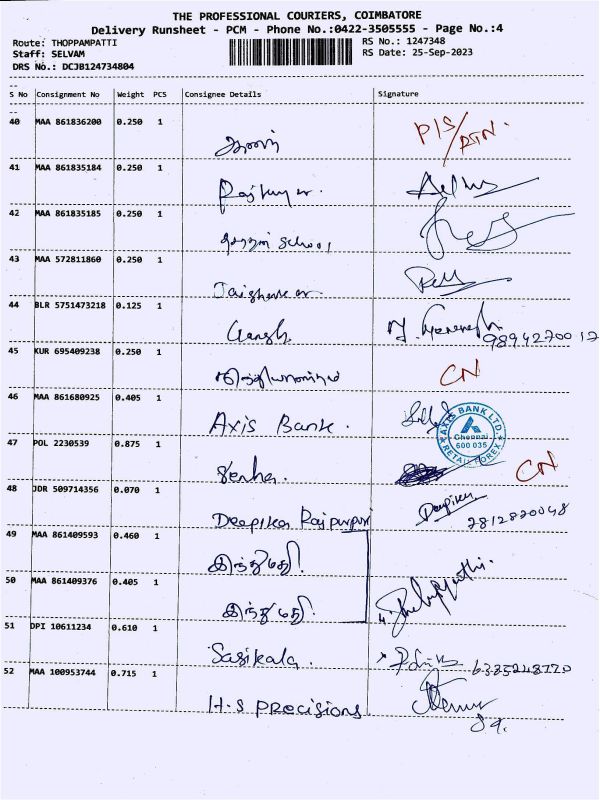 THE PROFESSIONAL COURIERS, COIMBATORE
Delivery Runsheet - PCM - Phone No.:0422-3505555 - Page No.:4
Route: THOPPAMPATTI RS No.: 1247348
Staff: SELVAM RS Date: 25-Sep-2023
DRS No.: DCJB124734804
S No Consignment No Weight PCS Consignee Details Signature
40 MAA 861836200 0.250 1
41 MAA 861835184 0.250 1
Rajkumar.
42 MAA 861835185 0.250 1
School
43 MAA 572811860 0.250 1
Jaishankar.
44 BLR 5751473218 0.125 1
Ganesh.
45 KUR 695409238 0.250 1
CN
46 MAA 861680925 0.405 1
Axis Bank.
AXIS BANK LTD.
Chennai
600 035
RETAIL FOREX
47 POL 2230539 0.875 1
CN
48 JDR 509714356 0.070 1
Deepika Rajpurpuri Deepika
49 MAA 861409593 0.460 1
இந்துமதி.
50 MAA 861409376 0.405 1
இந்துமதி.
51 DPI 10611234 0.610 1
Sasikala. 6385248770
52 MAA 100953744 0.715 1
H.S PRECISIONS